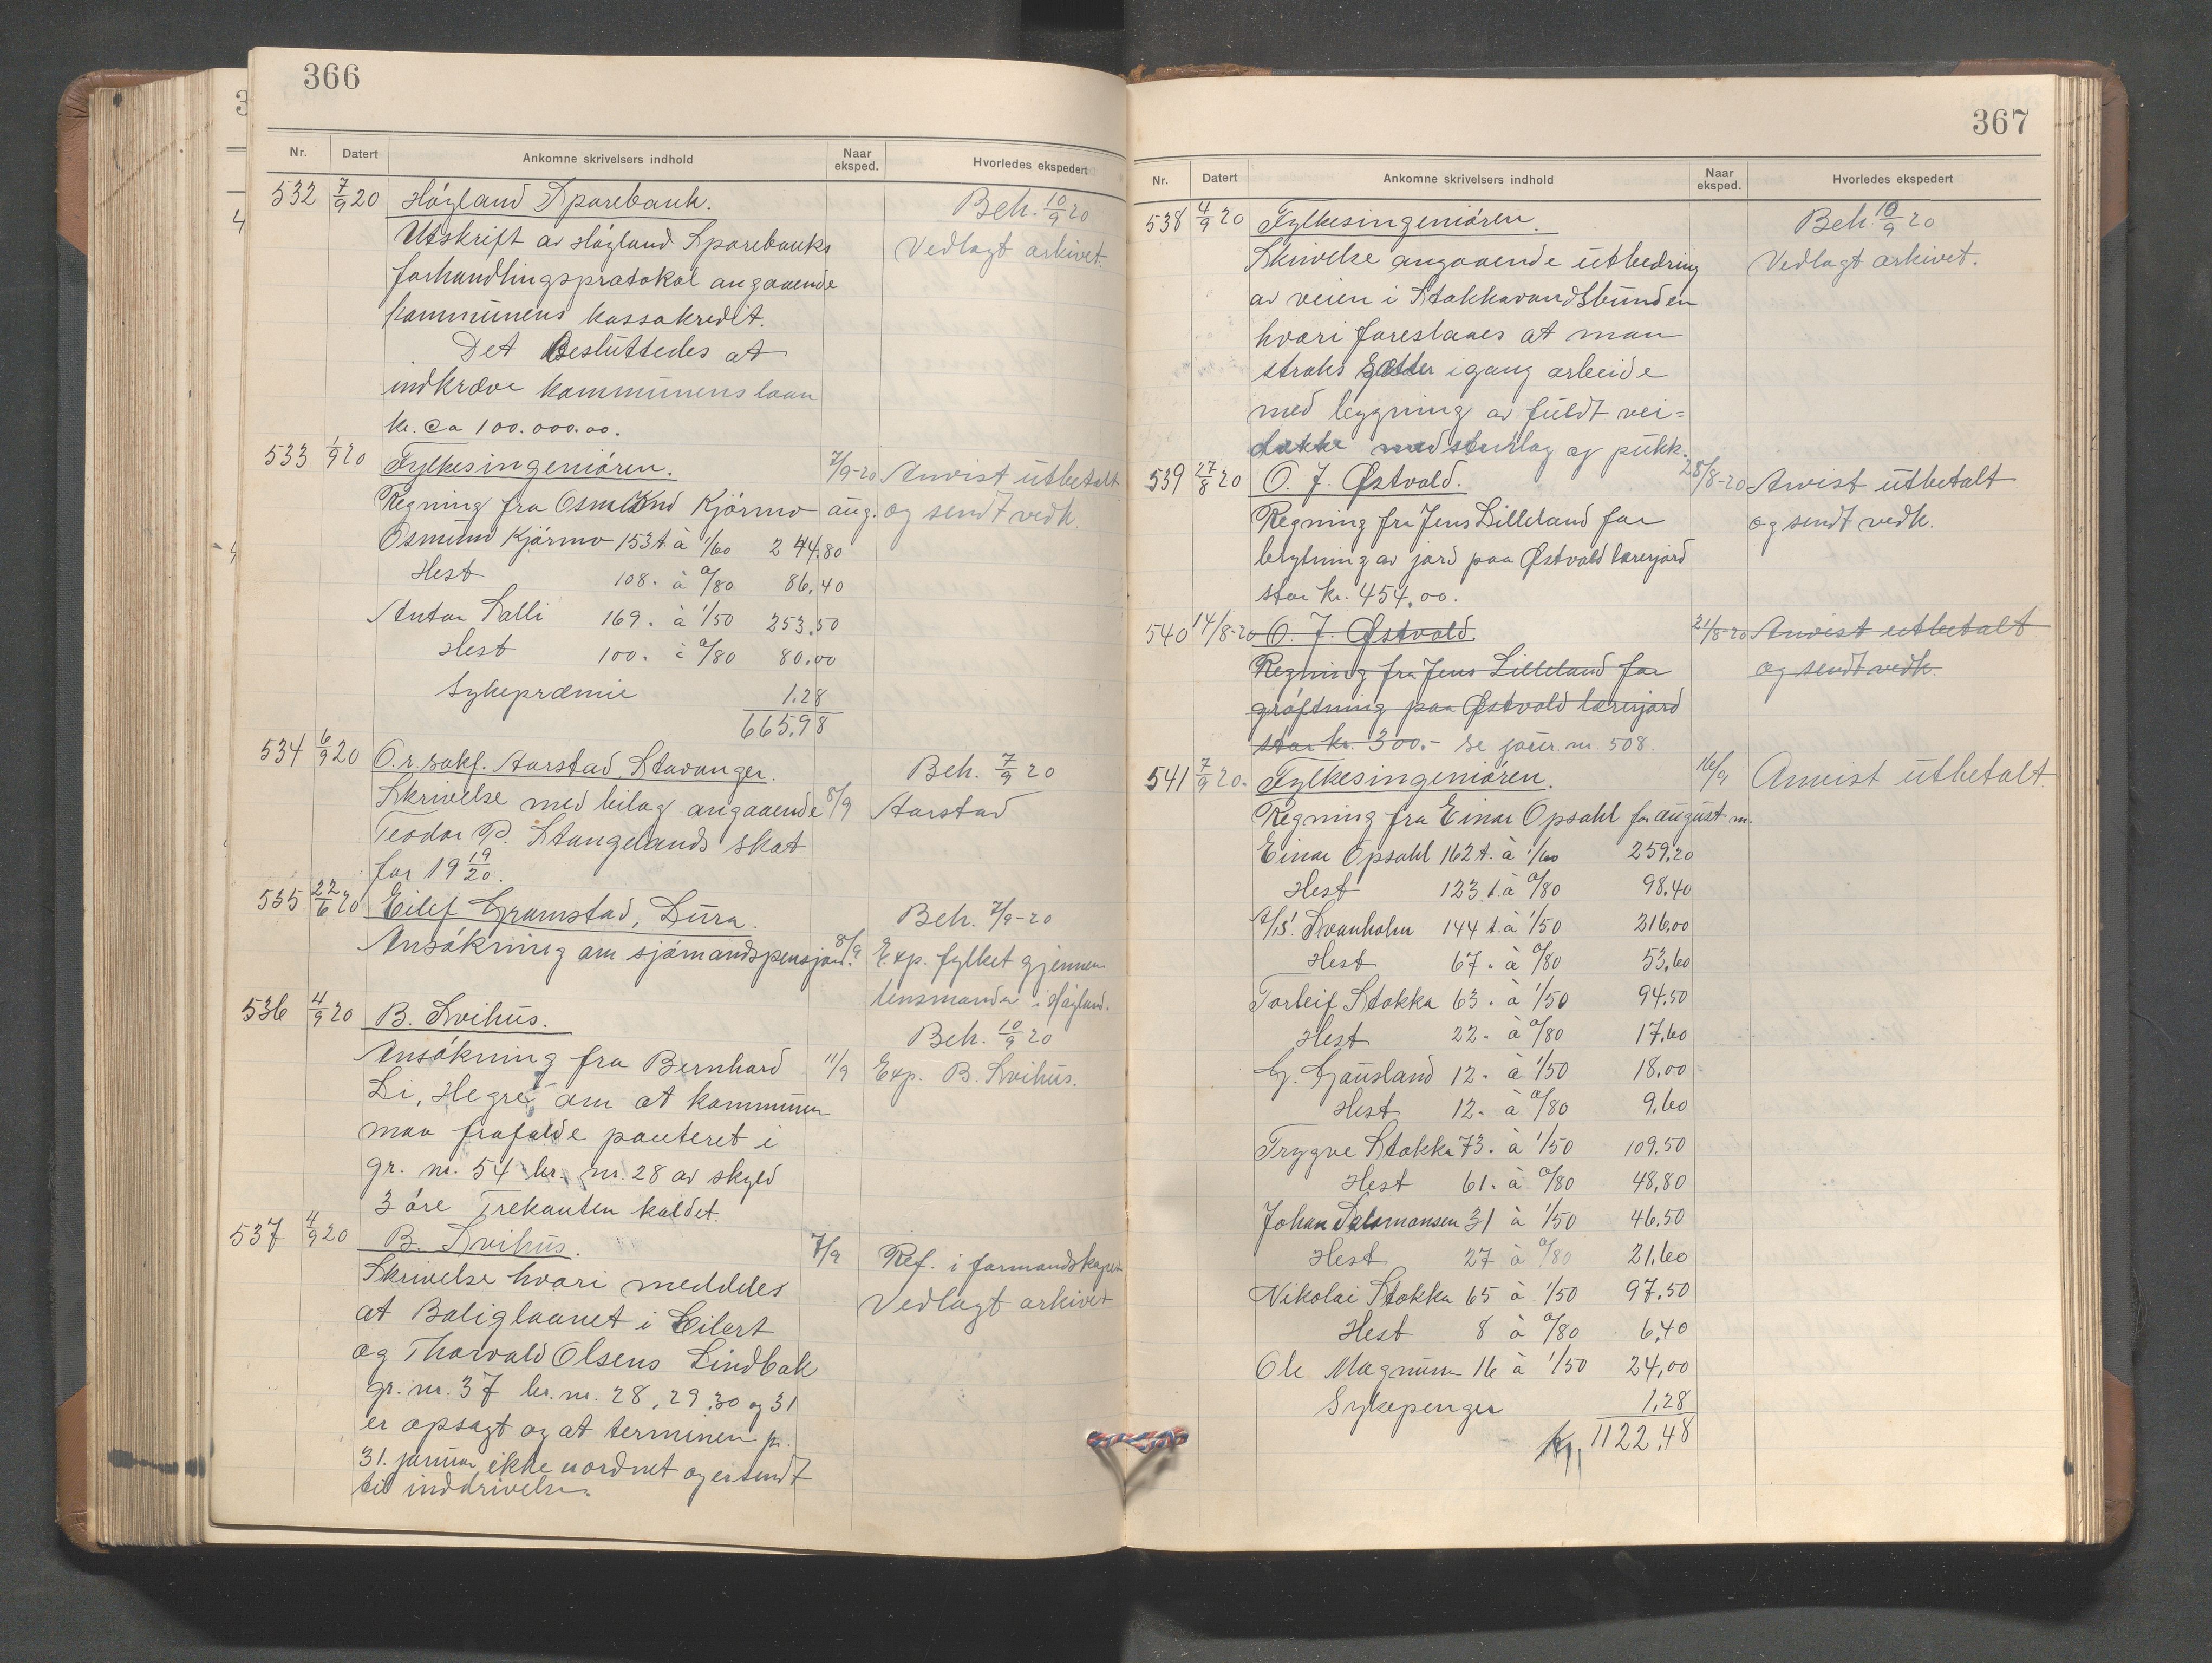 366
Nr.
Datert
Ankomne skrivelsers indhold
Naar eksped.
Hvorledes ekspedert
532 7/9 20 Høyland Sparebank. Beh. 10/9 20
Utskrift av Høyland Sparebanks Vedlagt arkivet.
forhandlingsprotokol angaaende
kommunens kassakredit.
Det besluttedes at
indkræve kommunens laan
kr. ca 100.000.00.
533 1/9 20 Fylkesingeniøren. 7/9-20 Anvist utbetalt
Regning fra Osmund Kjørmo aug. og sendt vedk.
Osmund Kjørmo 153 t. à 1/60 244,80
Hest 108. à 0/80 86,40
Anton Salli 169. à 1/50 253,50
Hest 100. à 0/80 80,00
Sykepræmie 1.28
665,98
534 6/9 20 O.r.sakf. Aarstad, Stavanger. Beh. 7/9 20
Skrivelse med bilag angaaende 8/9 Aarstad
Teodor P. Stangelands skat
for 19 19/20.
535 22/6 20 Eilef Gramstad, Lura. Beh. 7/9-20
Ansøkning om sjømandspensjon. 8/9 Exp. fylket gjennem
lensmanden i Høyland.
536 4/9 20 B. Svihus. Beh. 10/9 20
Ansøkning fra Bernhard 11/9 Exp. B. Svihus.
Li, Hegre, om at kommunen
maa frafalde panteret i
gr. nr. 54 br. nr. 28 av skyld
3 øre Trekanten kaldet.
537 4/9 20 B. Svihus. 7/9 Ref. i formandskapet
Skrivelse hvori meddeles Vedlagt arkivet
at Boliglaanet i Eilert
og Thorvald Olsens Lindbak
gr. nr. 37 br. nr. 28, 29, 30 og 31
er opsagt og at terminen pr.
31. januar ikke uordnet og er sendt
til inddrivelse.
367
Nr.
Datert
Ankomne skrivelsers indhold
Naar eksped.
Hvorledes ekspedert
538 4/9 20 Fylkesingeniøren. Beh. 10/9 20
Skrivelse angaaende utbedring Vedlagt arkivet.
av veien i Stokkavandsbunden
hvori foreslaaes at man
straks sætter igang arbeide
med bygning av fuldt vei=
dække med sturlag og pukk.
539 27/8 20 O. J. Østvold. 28/8-20 Anvist utbetalt
Regning fra Jens Lilleland for og sendt vedk.
brytning av jord paa Østvold lærerjord
stor kr. 454,00.
540 14/8-20 O. J. Østvold. 21/8-20 Anvist utbetalt
Regning fra Jens Lilleland for og sendt vedk.
grøftning paa Østvold lærerjord
stor kr. 300.- se jour. nr. 508.
541 7/9 20. Fylkesingeniøren. 16/9 Anvist utbetalt.
Regning fra Einar Opsahl for august m.
Einar Opsahl 162 t. à 1/60 259,20
Hest 123 t. à 0/80 98,40
A/S! Svanholm 144 t. à 1/50 216,00
Hest 67. à 0/80 53,60
Torleif Stokka 63. à 1/50 94.50
Hest 22. à 0/80 17,60
G. Gausland 12. à 1/50 18,00
Hest 12. à 0/80 9,60
Trygve Stokka 73. à 1/50 109.50
Hest 61. à 0/80 48,80
Johan Salomonsen 31 à 1/50 46.50
Hest 27 à 0/80 21,60
Nikolai Stokka 65 à 1/50 97.50
Hest 8 à 0/80 6,40
Ole Magnusen 16 à 1/50 24,00
Sykepenger 1,28
Kr. 1122,48